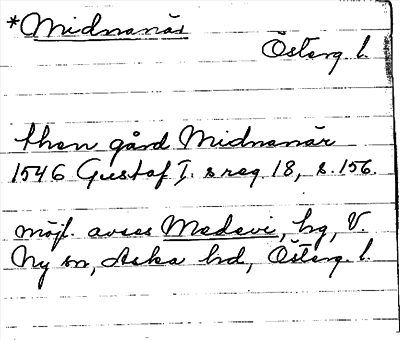 *Midnanäs
Österg. l.
then gård Midnanär
1546 Gustaf I. s reg. 18, s. 156.
möjl. avses Medevi, hg, V.
Ny sn, Aska hd, Österg. l.